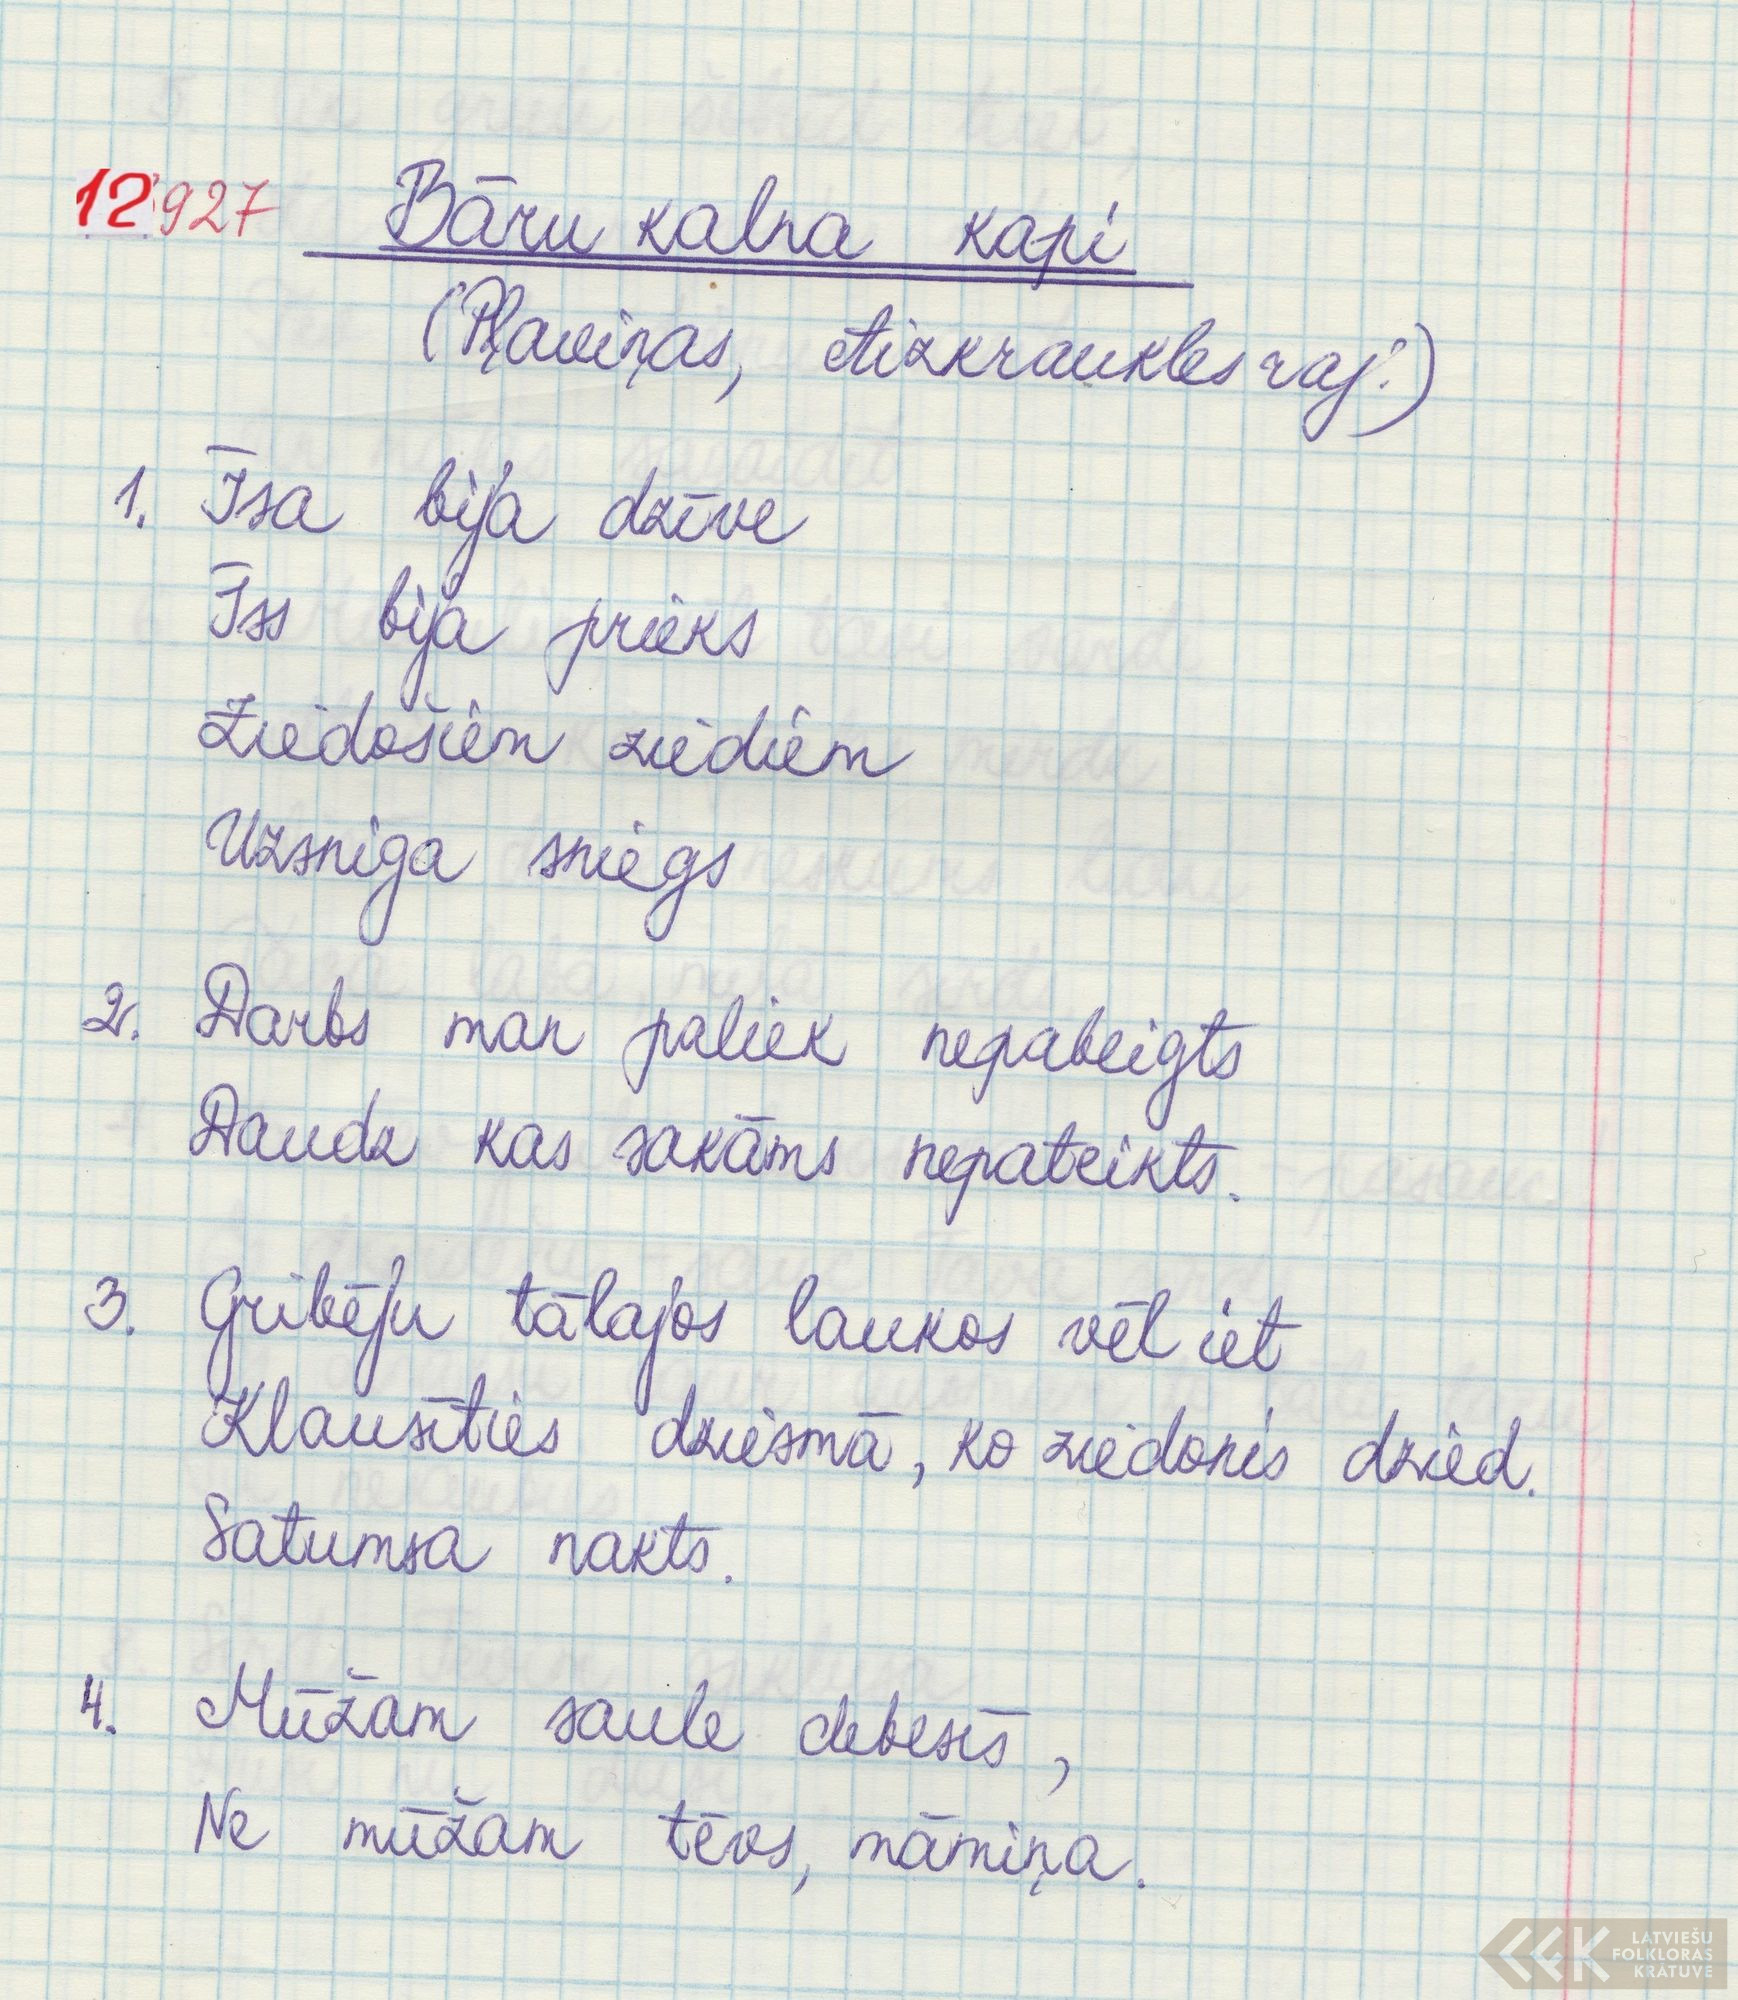 12927 Bāru kalna kapi
(Pļaviņas, Aizkraukles raj.)
1. Īsa bija dzīve
Īss bija prieks
Ziedošiem ziediem
Uzsniga sniegs
2. Darbs man paliek nepabeigts
Daudz kas sakāms nepateikts.
3. Gribēju tālajos laukos vēl iet
Klausīties dziesmā, ko ziedonis dzied.
Satumsa nakts.
4. Mūžam saule debesīs,
Ne mūžam tēvs, māmiņa.
LFK LATVIEŠU
FOLKLORAS
KRĀTUVE